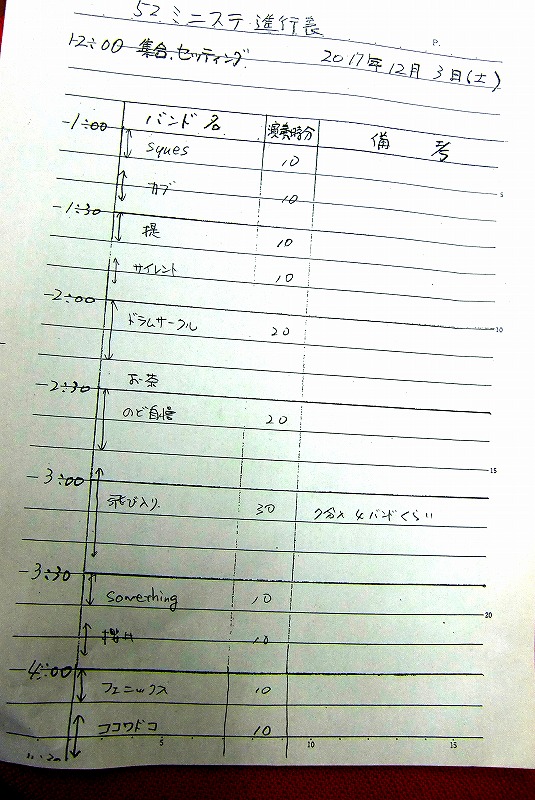 52 ミニステ 進行表
P.
12:00 集合、セッティング 2017年12月3日(土)
バンド名 演奏時分 備考
1:00
syues 10
カブ 10
5
1:30
提 10
サイレント 10
2:00
10
ドラムサークル 20
お茶
2:30
のど自慢 20
15
3:00
飛び入り 30 7分×4バンドくらい
3:30
something 10
20
10
4:00
フェニックス 10
ココワドコ 10
5 10 15